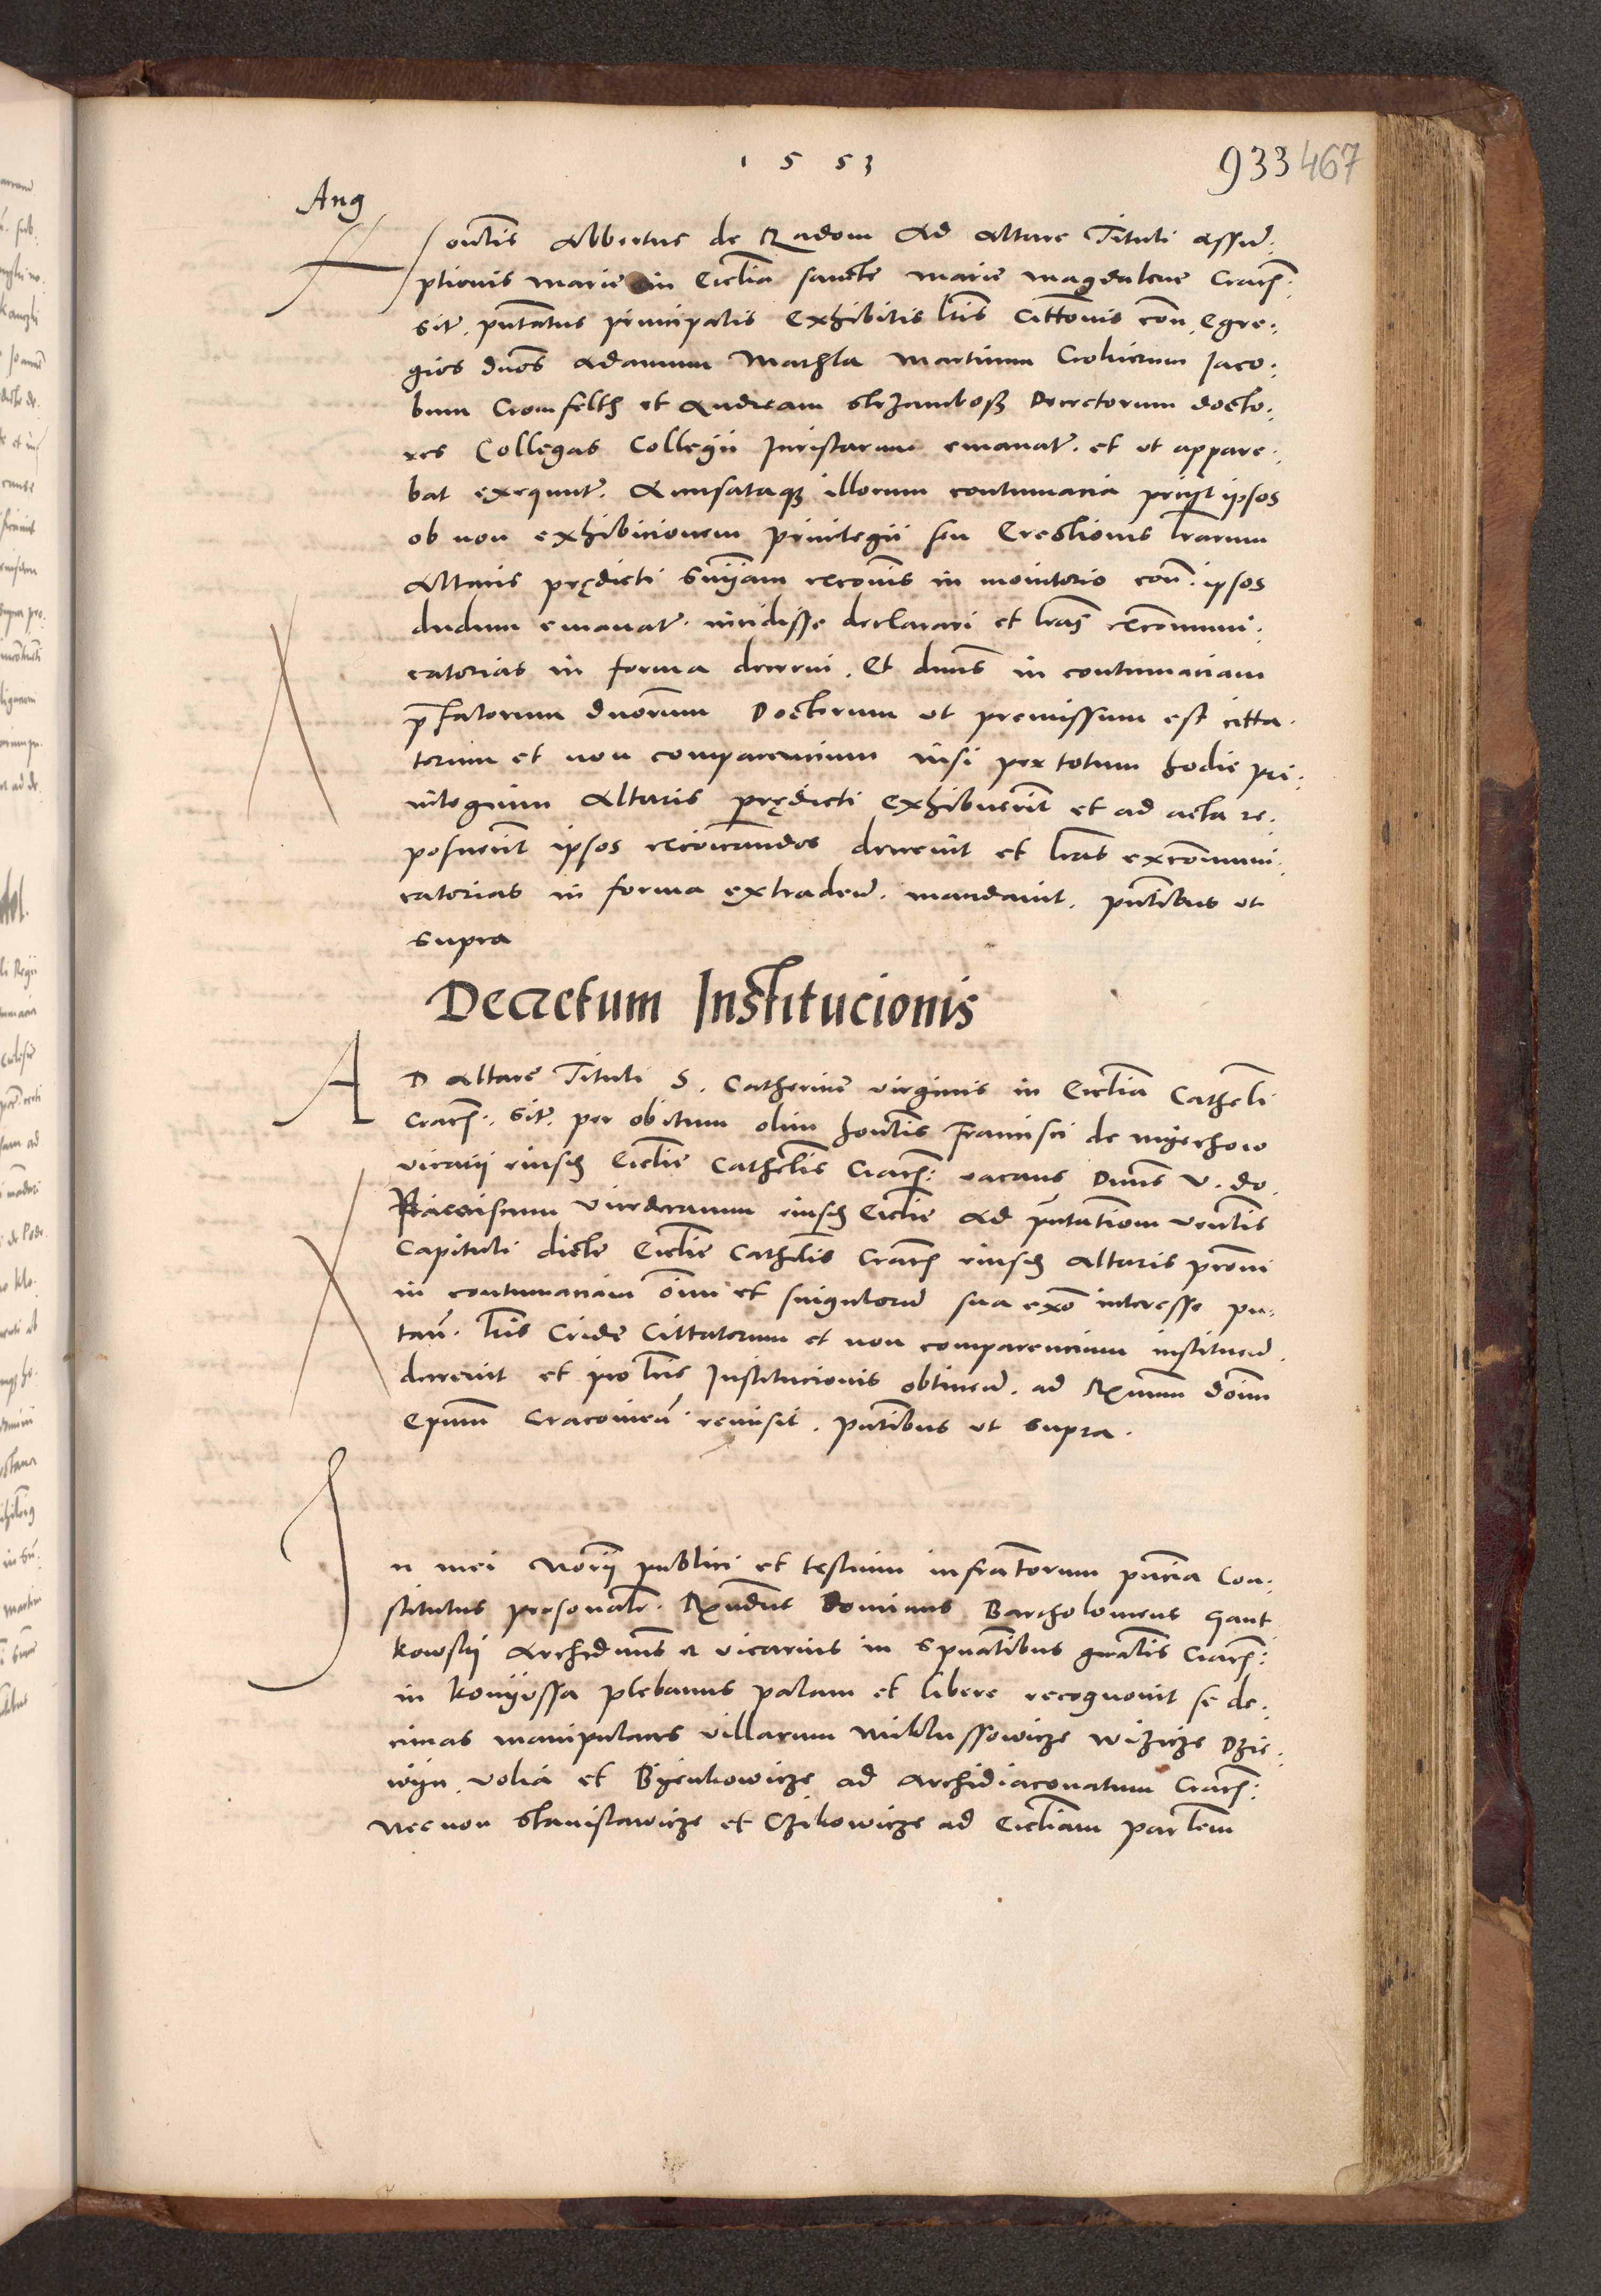 1 5 5 3
933 467
Ang
Honlis Albertus de Radom Ad Altare Tituli assum.
ptionis marie in Ecclia sancte marie magdalene Crac.
sit. pntatus principalis Exhibitis lris cittonis con. Egre.
gios dnos Adamum Mathla Martinum Crolucrum Jaco.
bum Cromfelth et Andream Strzambosz Decretorum docto.
res Collegas Collegii Juristarum emanat. et ut appare.
bat exequut. Accusataque illorum contumacia petijt ipsos
ob non exhibicionem privilegii seu Erectionis lrarum
Altaris prędicti snijam exconis in monitorio con. ipsos
dudum emanat. incidisse declarari et lras excommuni.
catorias in forma decerni. Et dnus in contumaciam
prefatorum dnorum Doctorum ut premissum est citta.
torum et non comparencium nisi per totum hodie pri.
vilegium Altaris prędicti exhibuerint et ad acta re.
posuerint ipsos excoicandos decrevit et lras excommuni.
catorias in forma extraden. mandavit. pntibus ut
supra
Decretum Institucionis
AD Altare Tituli S. Catherine virginis in Ecclia Cathedli
Crac. sit. per obitum olim honlis Francisci de Myechow
vicarii eiusd Ecclie Cathedlis Crac. vacans Dnus V. do.
vicedecanum eiusd Ecclie Ad pntationem venlis
Capituli dicte Ecclie Cathedlis Crac eiusd Altaris proni
in contumaciam oim et singulorum sua exo interesse pu.
tan. lris Cride Cittatorum et non comparencium instituend.
decrevit et pro lris Institucionis obtinend. ad Rmum doim
Epum Cracovien. remisit. pntibus ut supra.
In mei Norij publici et testium infratorum pncia Con.
stitutus personalr. Rndus Dominus Bartholomeus Gant
kowskij Archidnus et vicarius in spualibus gnalis Crac.
in Konijussa plebanus palam et libere recognovit se de.
cimas manipulares villarum Miklussowicze Wizicze Dzie.
wijn volia et Byenkowicze ad Archidiaconatum Crac.
Nec non Stanislawicze et Czikowicze ad Eccliam parlem